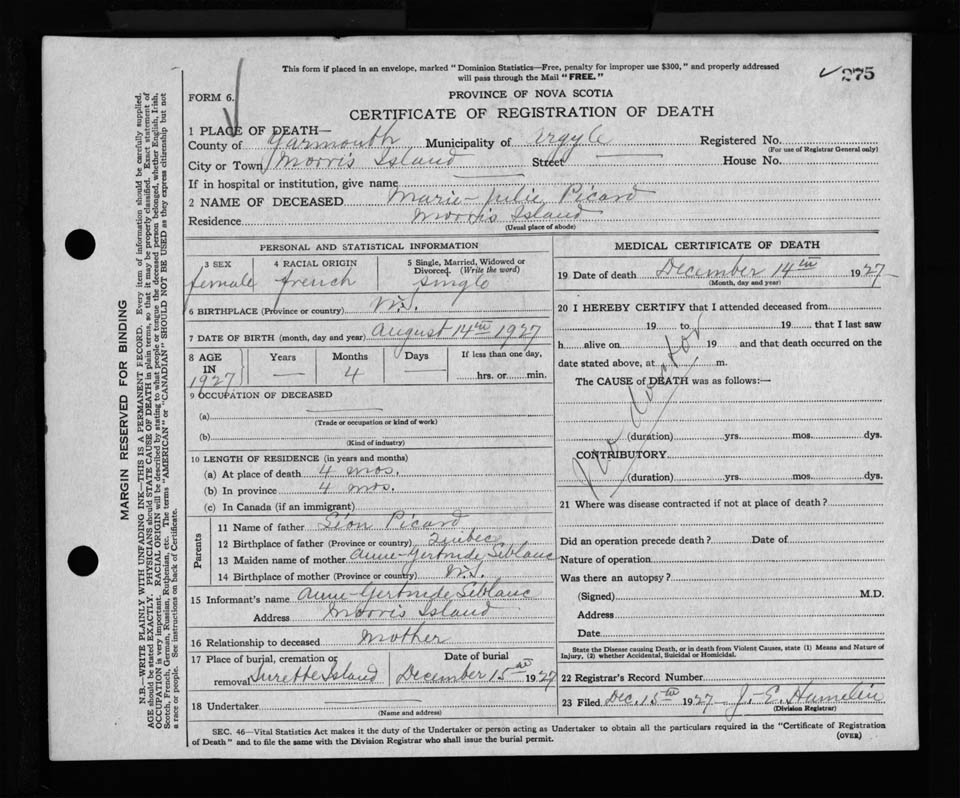 This form if placed in an envelope, marked "Dominion Statistics—Free, penalty for improper use $300," and properly addressed
will pass through the Mail "FREE."
✓ 275
FORM 6.
PROVINCE OF NOVA SCOTIA
CERTIFICATE OF REGISTRATION OF DEATH
1 PLACE OF DEATH—
County of Yarmouth Municipality of Argyle Registered No.
(For use of Registrar General only)
City or Town Morris Island Street — House No.
If in hospital or institution, give name —
2 NAME OF DECEASED Marie-Julie Picard
Residence Morris Island
(Usual place of abode)
PERSONAL AND STATISTICAL INFORMATION
3 SEX 4 RACIAL ORIGIN 5 Single, Married, Widowed or Divorced. (Write the word)
female french single
6 BIRTHPLACE (Province or country) N.S.
7 DATE OF BIRTH (month, day and year) August 14th 1927
8 AGE IN 1927 Years — Months 4 Days — If less than one day, hrs. or min.
9 OCCUPATION OF DECEASED
(a) —
(Trade or occupation or kind of work)
(b)
(Kind of industry)
10 LENGTH OF RESIDENCE (in years and months)
(a) At place of death 4 mos.
(b) In province 4 mos.
(c) In Canada (if an immigrant)
Parents
11 Name of father Léon Picard
12 Birthplace of father (Province or country) Quibec
13 Maiden name of mother Anne-Gertrude Leblanc
14 Birthplace of mother (Province or country) N.S.
15 Informant's name Anne-Gertrude Leblanc
Address Morris Island
16 Relationship to deceased Mother
17 Place of burial, cremation or removal Surette Island Date of burial December 15th 1927
18 Undertaker —
(Name and address)
MEDICAL CERTIFICATE OF DEATH
19 Date of death December 14th 1927
(Month, day and year)
20 I HEREBY CERTIFY that I attended deceased from
19 to 19 that I last saw
h alive on 19 and that death occurred on the
date stated above, at m.
The CAUSE of DEATH was as follows:—
No Doctor
(duration) yrs. mos. dys.
CONTRIBUTORY
(duration) yrs. mos. dys.
21 Where was disease contracted if not at place of death?
Did an operation precede death? Date of
Nature of operation
Was there an autopsy?
(Signed) M.D.
Address
Date
State the Disease causing Death, or in death from Violent Causes, state (1) Means and Nature of
Injury, (2) whether Accidental, Suicidal or Homicidal.
22 Registrar's Record Number
23 Filed Dec. 15th 1927 J. E. Hamelin
(Division Registrar)
SEC. 46—Vital Statistics Act makes it the duty of the Undertaker or person acting as Undertaker to obtain all the particulars required in the "Certificate of Registration
of Death" and to file the same with the Division Registrar who shall issue the burial permit.
(OVER)
MARGIN RESERVED FOR BINDING
N.B.—WRITE PLAINLY WITH UNFADING INK—THIS IS A PERMANENT RECORD. Every item of information should be carefully supplied.
AGE should be stated EXACTLY. PHYSICIANS should STATE CAUSE OF DEATH in plain terms, so that it may be properly classified. Exact statement of
OCCUPATION is very important. RACIAL ORIGIN will be described by stating to what people or tongue the deceased person belonged, whether English, Irish,
Scotch, French, German, Russian, Ruthenian, etc. The terms "AMERICAN" or "CANADIAN" SHOULD NOT BE USED as they express citizenship but not
a race or people. See instructions on back of Certificate.